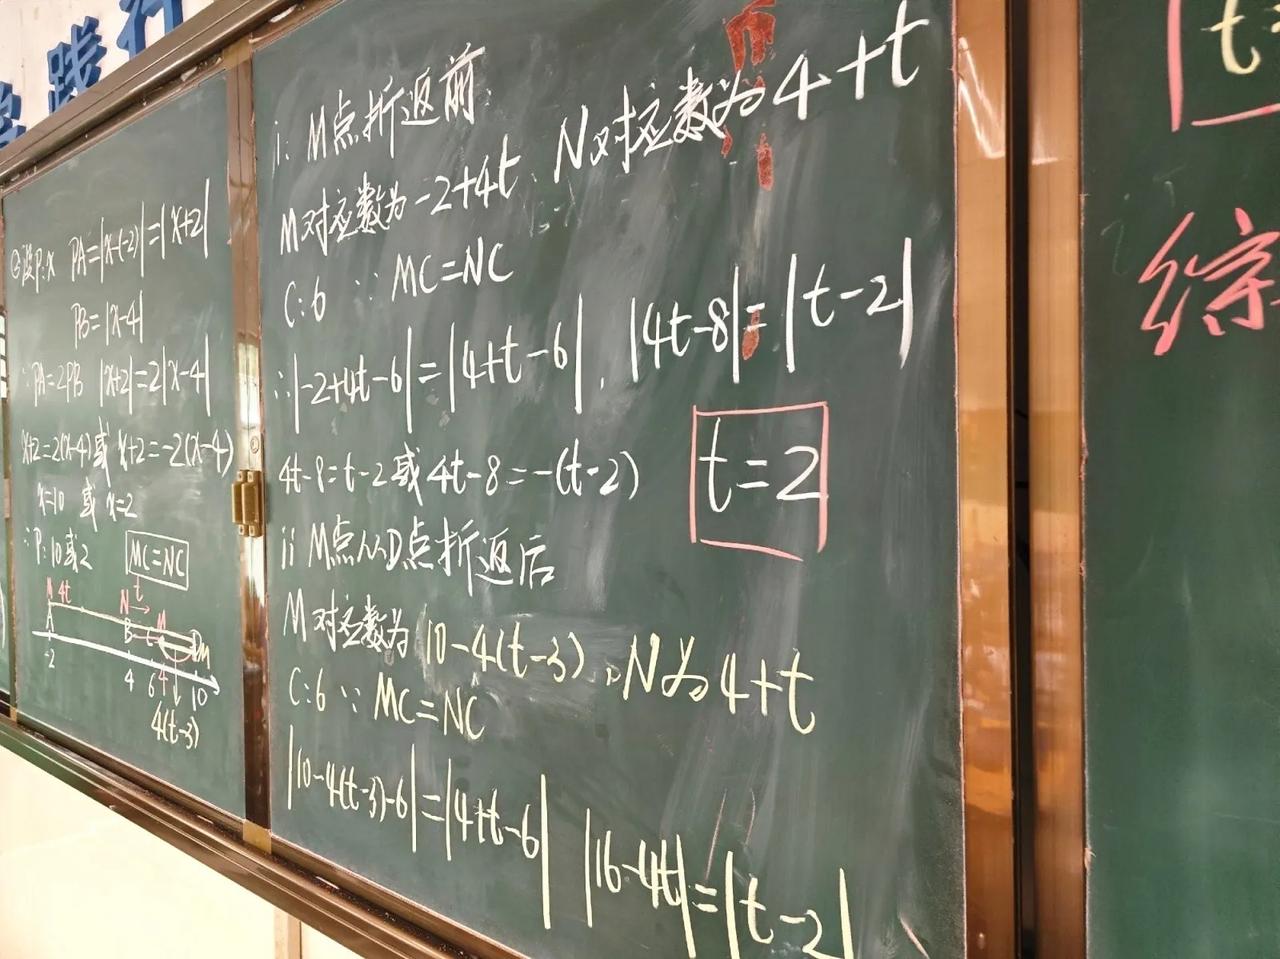 践行
②设P:x PA=|x-(-2)|=|x+2|
PB=|x-4|
∵PA=2PB |x+2|=2|x-4|
x+2=2(x-4)或 x+2=-2(x-4)
x=10 或 x=2
∴P:10或2 MC=NC
M 4t N t M
A B C D M
-2 4 6 4 10
4(t-3)
i: M点折返前
M对应数为-2+4t、N对应数为4+t
C:6 ∵MC=NC
∴|-2+4t-6|=|4+t-6|. |4t-8|=|t-2|
4t-8=t-2或4t-8=-(t-2) t=2
ii M点从D点折返后
M对应数为10-4(t-3), N为4+t
C:6 ∵MC=NC
|10-4(t-3)-6|=|4+t-6| |16-4t|=|t-2|
t=
综